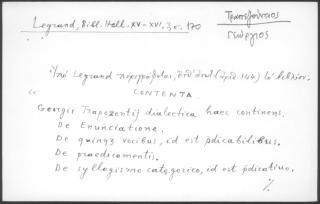 Legrand, Bibl. Hell. XV-XVI, 3, σ. 170
Τραπεζούντιος
Γεώργιος
Ὑπὸ Legrand περιγράφεται, ὑπ' ἀριθ. 144) τὸ βιβλίον.
CONTENTA.
« Georgii Trapezontij dialectica haec continens.
De Enunciatione.
De quinqz vocibus, id est pdicabilibus.
De praedicamentis.
De syllogismo categorico, id est pdicatiuo.
%